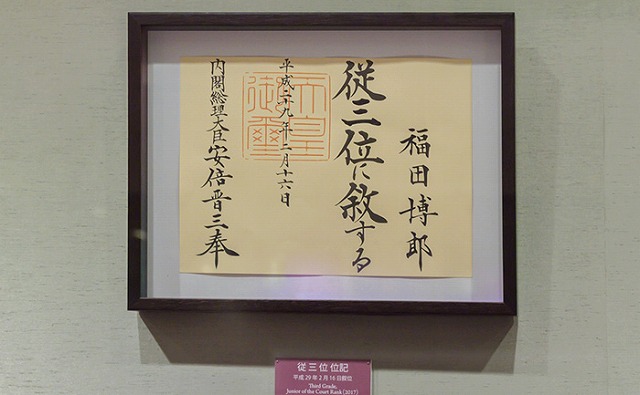 福田博郎
従三位に敘する
平成二十九年二月十六日
天皇御璽
内閣総理大臣安倍晋三奉
従三位 位記
平成29年2月16日叙位
Third Grade,
Junior of the Court Rank (2017)